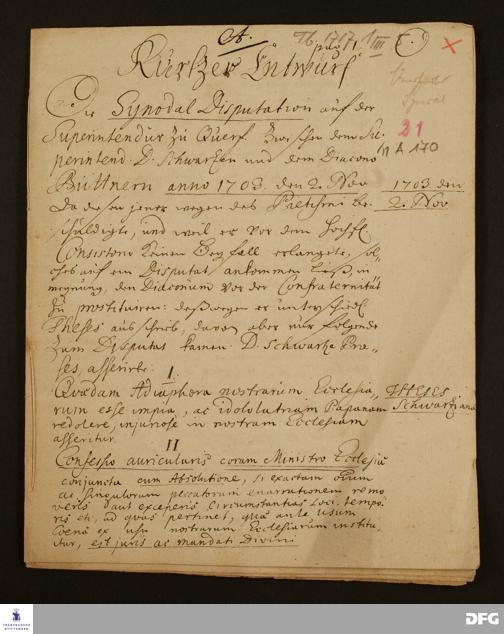 A.
Kurtzer Entwurf
Der Synodal Disputation auf der
Superintendur zu Querf. zwischen dem Su-
perintend. D. Schwartzen und dem Diacono
Büttnern anno 1703. den 2. Nov
1703. den
2. Nov
21
Da dieser jenen wegen des Pietismi be-
schuldigte, und weil er vor dem Hochfl.
Consistorio keinen Beyfall erlangete, sol-
ches auf ein Disputat ankommen ließ, in
meynung, den Diaconum vor der Confraternität
zu prostituiren: deßwegen er unterschiedl.
Theses ausschrieb, davon aber nur folgende
zum Disputat kamen. D. Schwartze Prae-
ses, asserirte:
I
Quaedam Adiaphora nostrarum Ecclesia-
rum esse impia, ac idololatriam Papanam
redolere, injuriose in nostram Ecclesiam
asseritur.
Theses
Schwartziana
II
Confessio auricularis coram Ministro Ecclesiae
conjuncta cum Absolutione, si exactam omnium
ac singulorum peccatorum enarrationem remo
veris aut exceperis Circumstantias Loci, tempo-
ris etc. ad quas pertinet, quae ante usum
Coenae ex usu nostrarum Ecclesiarum institu-
itur, est juris ac mandati Divini
DFG